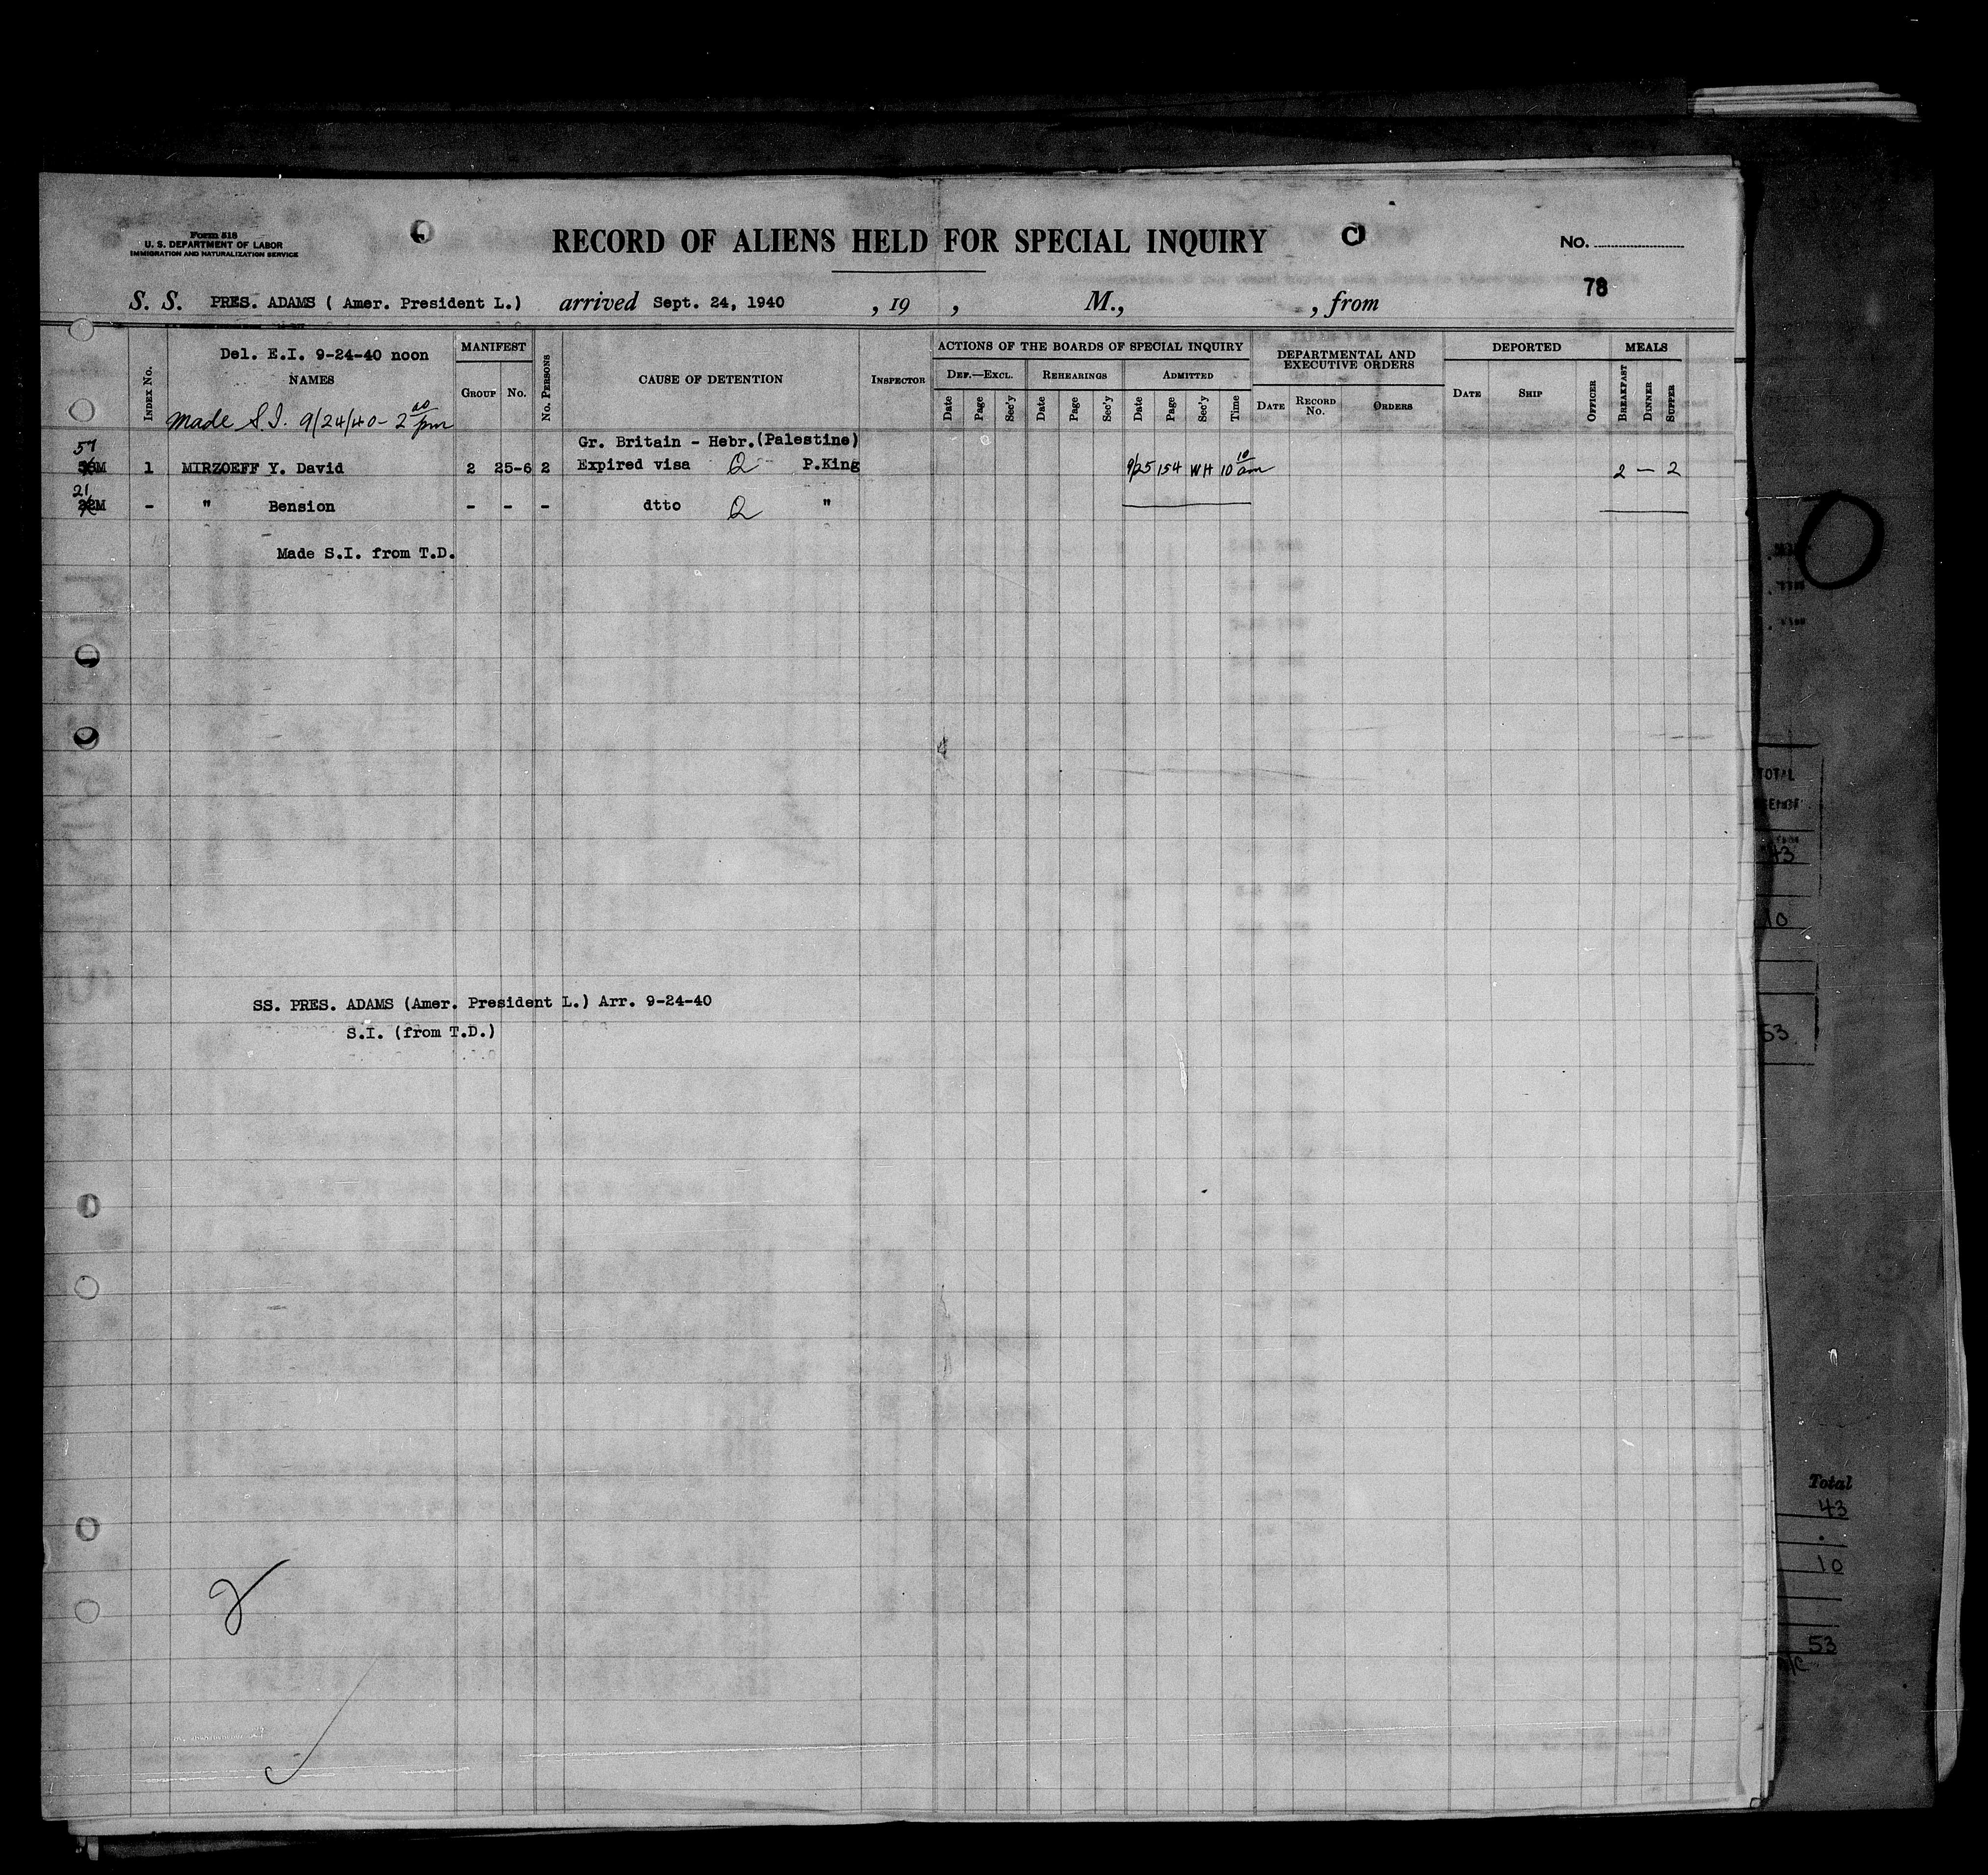 Form 518
U. S. DEPARTMENT OF LABOR
IMMIGRATION AND NATURALIZATION SERVICE
RECORD OF ALIENS HELD FOR SPECIAL INQUIRY
C
No.
78
S. S. PRES. ADAMS ( Amer. President L.) arrived Sept. 24, 1940 , 19 , M., , from
Del. E.I. 9-24-40 noon
INDEX No.
NAMES
Made S.I. 9/24/40 - 2 00 pm
MANIFEST
GROUP No.
No. PERSONS
CAUSE OF DETENTION
INSPECTOR
ACTIONS OF THE BOARDS OF SPECIAL INQUIRY
DEF.—EXCL. REHEARINGS ADMITTED
Date Page Sec'y Date Page Sec'y Date Page Sec'y Time
DEPARTMENTAL AND
EXECUTIVE ORDERS
DATE RECORD No. ORDERS
DEPORTED
DATE SHIP OFFICER
MEALS
BREAKFAST DINNER SUPPER
Gr. Britain - Hebr.(Palestine)
57
M 1 MIRZOEFF Y. David 2 25-6 2 Expired visa Q P.King 9/25 154 WH 10 10 am 2 — 2
21
22M - " Bension - - - dtto Q "
Made S.I. from T.D.
SS. PRES. ADAMS (Amer. President L.) Arr. 9-24-40
S.I. (from T.D.)
TOTAL
43
10
53
Total
43
10
53